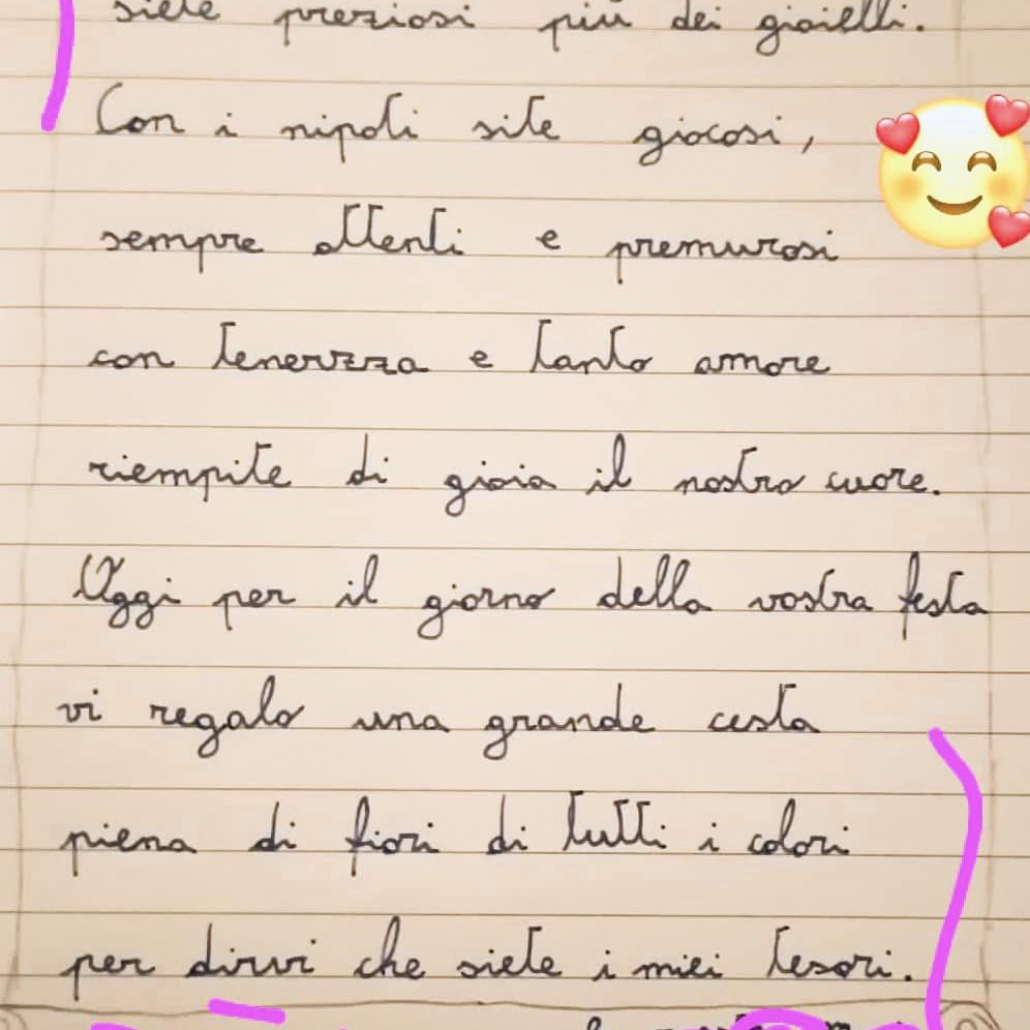 siete preziosi più dei gioielli.
Con i nipoti site giocosi,
sempre attenti e premurosi
con tenerezza e tanto amore
riempite di gioia il nostro cuore.
Oggi per il giorno della vostra festa
vi regalo una grande cesta
piena di fiori di tutti i colori
per dirvi che siete i miei tesori.